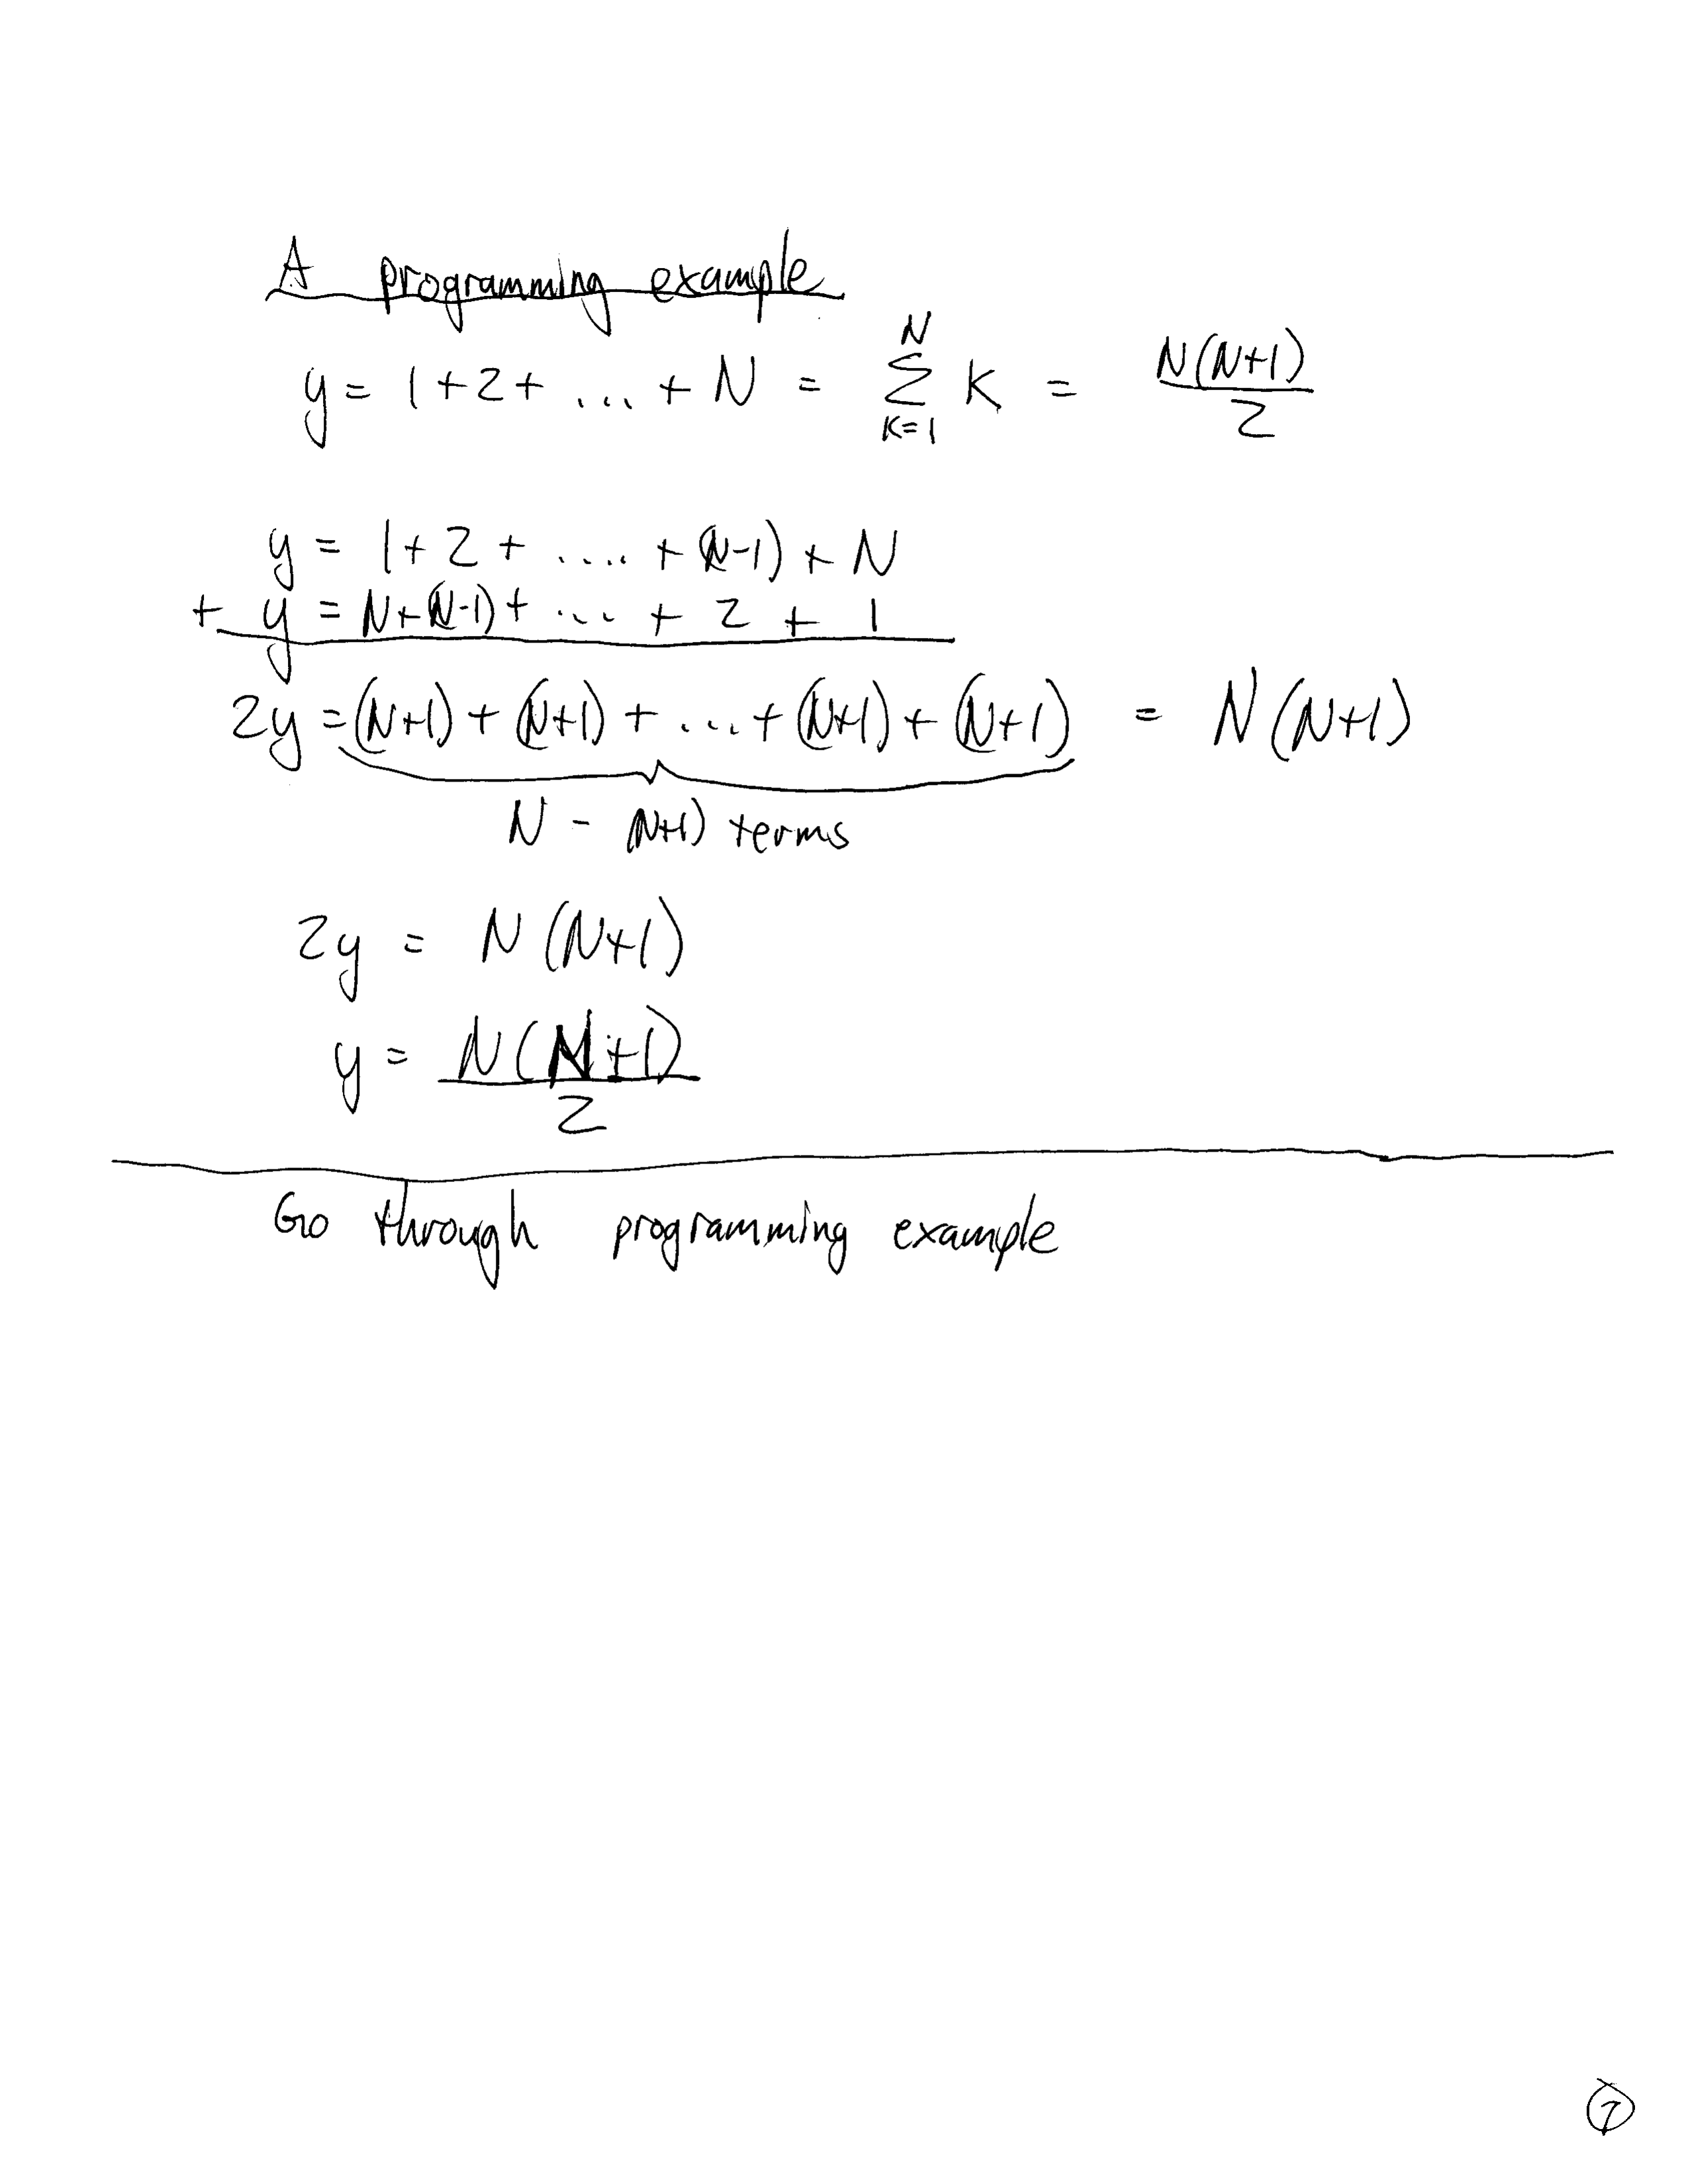 A programming example
y = 1+2+ ... + N = \sum_{K=1}^{N} K = \frac{N(N+1)}{2}
y = 1+2+ .... + (N-1) + N
+ y = N+(N-1)+ ... + 2 + 1
2y = (N+1) + (N+1) + ... + (N+1) + (N+1) = N(N+1)
N - (N+1) terms
2y = N(N+1)
y = \frac{N(N+1)}{2}
Go through programming example
7